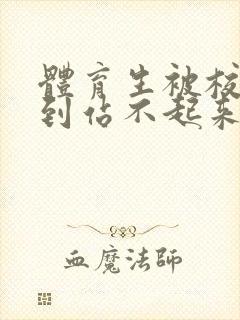 體育生被校
到佔不起來
血魔法師